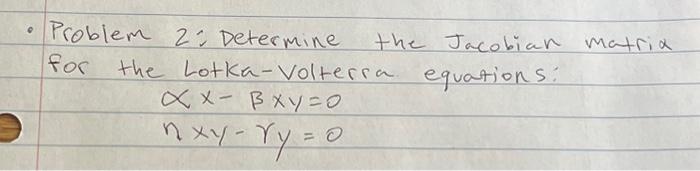 • Problem 2: Determine the Jacobian matrix
for the Lotka-Volterra equations:
αx - βxy = 0
nxy - γy = 0